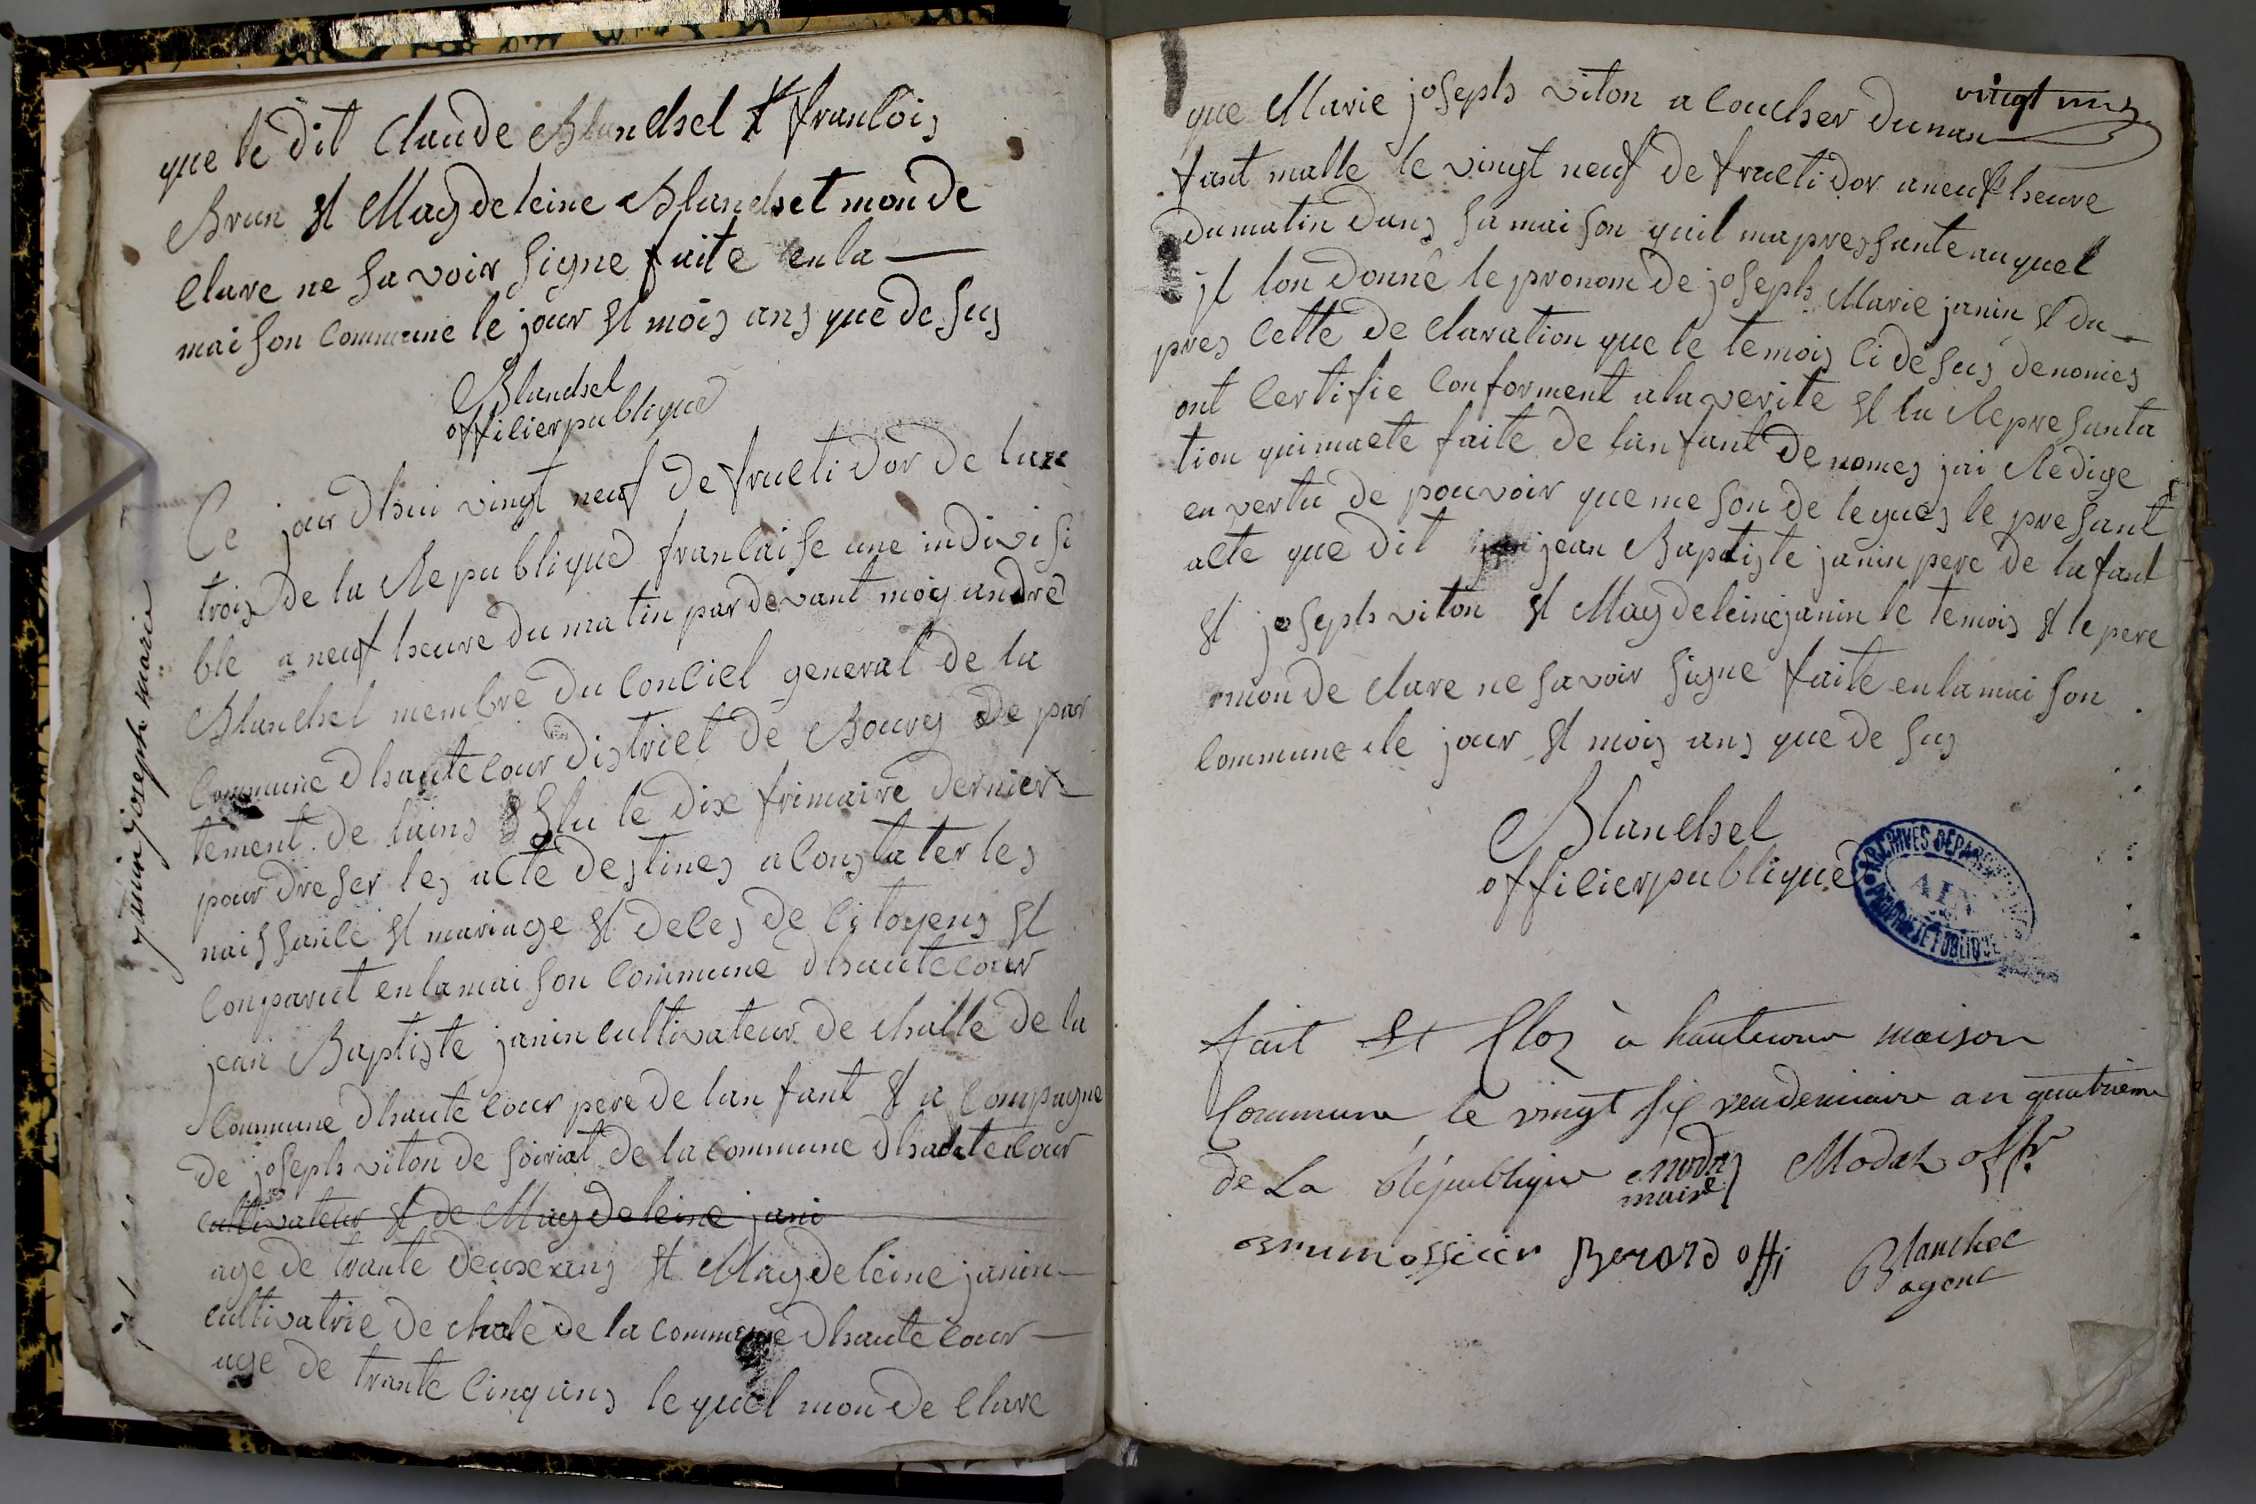 que le dit Claude Blanchet et francois
Brun et Magdeleine Blanchet mon de
clare ne savoir signe faite en la
maison commune le jour et mois ans que desus
Blanchet
officier publique
Ce jour dhui vingt neuf de fructidor de lan
trois de la Republique francaise une indivisi
ble a neuf heure du matin par devant moy andre
Blanchet membre du conciel general de la
commune dhautecour district de Bourg de par
tement de lains Elu le dix frimaire dernier
pour dreser les acte destines a constater les
naissance et mariage et deces de citoyens et
conparut en la maison commune dhautecour
jean Baptiste janin cultivateur de challe de la
commune dhaute cour pere de lanfant et a compagne
de joseph viton de soiriat de la commune dhautecour
cultivateur et de Magdeleine jani
age de trante deux ans et Magdeleine janin
cultivatric de chale de la commune dhautecour
age de trante cinq ans le quel mon de clare
janin joseph marie
vingt un
que Marie joseph viton a coucher dunan
fant malle le vingt neuf de fructidor a neuf heure
du matin dans sa maison quil mapressante au quel
jl lon donné le pronom de joseph Marie janin et da
pres cette declaration que le temois ci desus denomes
ont certifie conforment a la verite et la Represanta
tion qui maete faite de lanfant denomes jai Redige
en vertu de pouvoir que me son delegues le presant
acte que dit jean Baptiste janin pere de lafant
et joseph viton et Magdeleine janin le temois et le pere
mon de clare ne savoir signe faite en la maison
commune le jour et mois ans que desus
Blanchet
officier publique
ARCHIVES DÉPARTEMENTALES
AIN
PROPRIÉTÉ PUBLIQUE
fait et Clos à hautecour maison
Commune le vingt six vendemiaire an quatrieme
de La République
maire
Modas offr
Brun officier Berard offi
Blanchet
agent